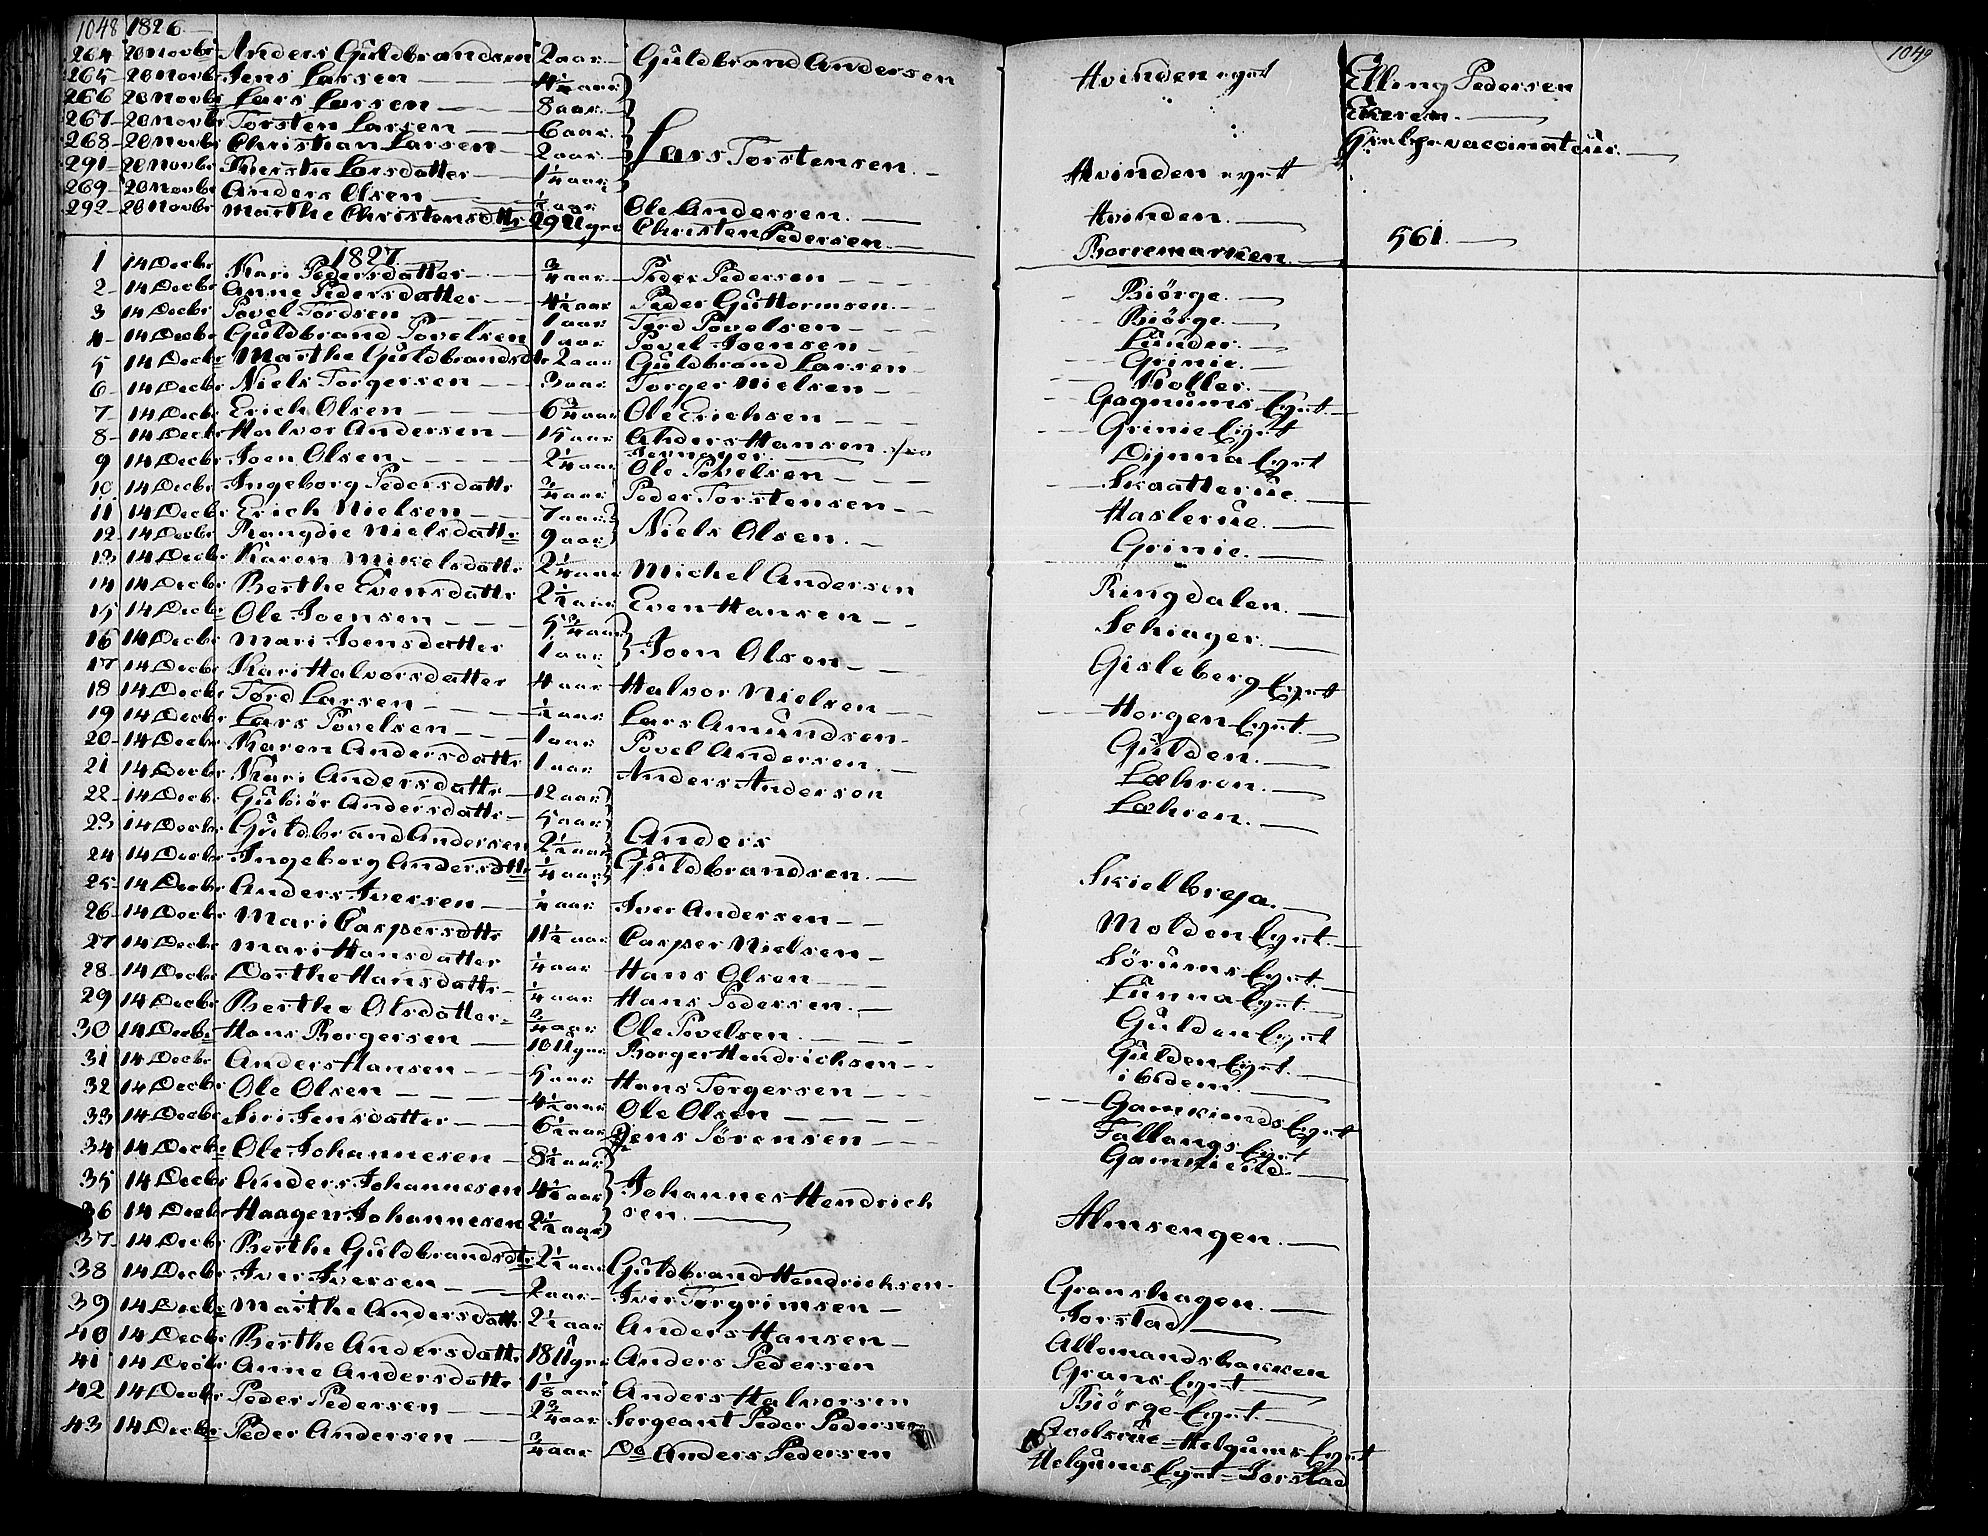 1048 1826
264 20 Novbr Anders Guldbrandsen 2 aar Guldbrand Andersen Hvinden eyet Elling Pedersen
265 20 Novbr Jens Larsen 4½ aar
266 20 Novbr Lars Larsen 8 aar Ekeren.
267 20 Novbr Torsten Larsen 6 aar
268 20 Novbr Christian Larsen 2 aar Lars Torstensen. vaccinateur.
291 20 Novbr Kierstie Larsdatter 1¼ aar Hvinden eyet
269 20 Novbr Anders Olsen ½ aar Ole Andersen. Hvinden.
292 20 Novbr Marthe Christensdttr 29 Uger Christen Pedersen. Borremarken. 561.
1827
1 14 Decbr Kari Pedersdatter ¾ aar Peder Pedersen Biörge.
2 14 Decbr Anne Pedersdatter 4½ aar Peder Guttormsen Biörge.
3 14 Decbr Povel Tordsen 1 aar Tord Povelsen Lunder.
4 14 Decbr Guldbrand Povelsen 1 aar Povel Joensen Grinie.
5 14 Decbr Marthe Guldbrandsdtr 2 aar Guldbrand Larsen Koller.
6 14 Decbr Niels Torgersen 3 aar Torger Nielsen Gagnums Eyet.
7 14 Decbr Erich Olsen 6¾ aar Ole Erichsen Grinie Eyet
8 14 Decbr Halvor Andersen 15 aar Anders Hansen fra Dynna Eyet
9 14 Decbr Joen Olsen 2¼ aar Ole Povelsen Skaatterue.
10 14 Decbr Ingeborg Pedersdattr ¾ aar Peder Torstensen Haslerue.
11 14 Decbr Erich Nielsen 7 aar Niels Olsen. Grinie.
12 14 Decbr Rangdie Nielsdatter 9 aar
13 14 Decbr Karen Mikelsdattr 2¼ aar Michel Andersen Ringdalen.
14 14 Decbr Berthe Evensdattr 2½ aar Even Hansen Schiager.
15 14 Decbr Ole Joensen 5¾ aar Joen Olsen Gisleberg Eyet
16 14 Decbr Mari Joensdatter 1 aar
17 14 Decbr Kari Halvorsdatter 4 aar Halvor Nielsen Horgen Eyet.
18 14 Decbr Tord Larsen ½ aar Lars Amundsen Gulden.
19 14 Decbr Lars Povelsen 1 aar Povel Andersen Læhren.
20 14 Decbr Karen Andersdattr 1 aar Anders Andersen Læhren.
21 14 Decbr Kari Andersdattr 12 aar
22 14 Decbr Gubiör Andersdattr 5 aar
23 14 Decbr Guldbrand Andersen 2½ aar Anders
24 14 Decbr Ingeborg Andersdttr ¼ aar Guldbrandsen. Skielbreja.
25 14 Decbr Anders Iversen ¼ aar Iver Andersen Molden Eyet.
26 14 Decbr Mari Caspersdttr 11½ aar Casper Nielsen Sörums Eyet.
27 14 Decbr Mari Hansdatter ¼ aar Hans Olsen Lunna Eyet.
28 14 Decbr Dorthe Hansdattr ¼ aar Hans Pedersen Gulden Eyet
29 14 Decbr Berthe Olsdatter ¾ aar Ole Povelsen Gulden Eyet.
30 14 Decbr Hans Borgersen 10 Uger Borger Hendrichsen ibidem.
31 14 Decbr Anders Hansen 5 aar Hans Torgersen Gamkinds Eyet
32 14 Decbr Ole Olsen 4½ aar Ole Olsen Tallangs Eyet
33 14 Decbr Siri Jensdatter 6½ aar Jens Sörensen
34 14 Decbr Ole Johannesen 8½ aar
35 14 Decbr Anders Johannesen 4½ aar Johannes Hendrich
36 14 Decbr Haagen Johannesen 2½ aar sen. Almsengen.
37 14 Decbr Berthe Guldbrandsdtr 2½ aar Guldbrand Hendrichsen Granshagen.
38 14 Decbr Iver Iversen 2 aar Iver Torgrimsen Jorstad
39 14 Decbr Marthe Andersdattr 2½ aar Anders Hansen Allemandsbakken
40 14 Decbr Berthe Andersdattr 18 Uger Anders Pedersen Grans Eyet
41 14 Decbr Anne Andersdattr 1⅛ aar Anders Halvorsen Biörge Eyet.
42 14 Decbr Peder Pedersen 2¾ aar Sergeant Peder Pedersen Helgums Eyet
43 14 Decbr Peder Andersen ¾ aar Do Anders Pedersen Helgums Eyet = Jorstad
1049